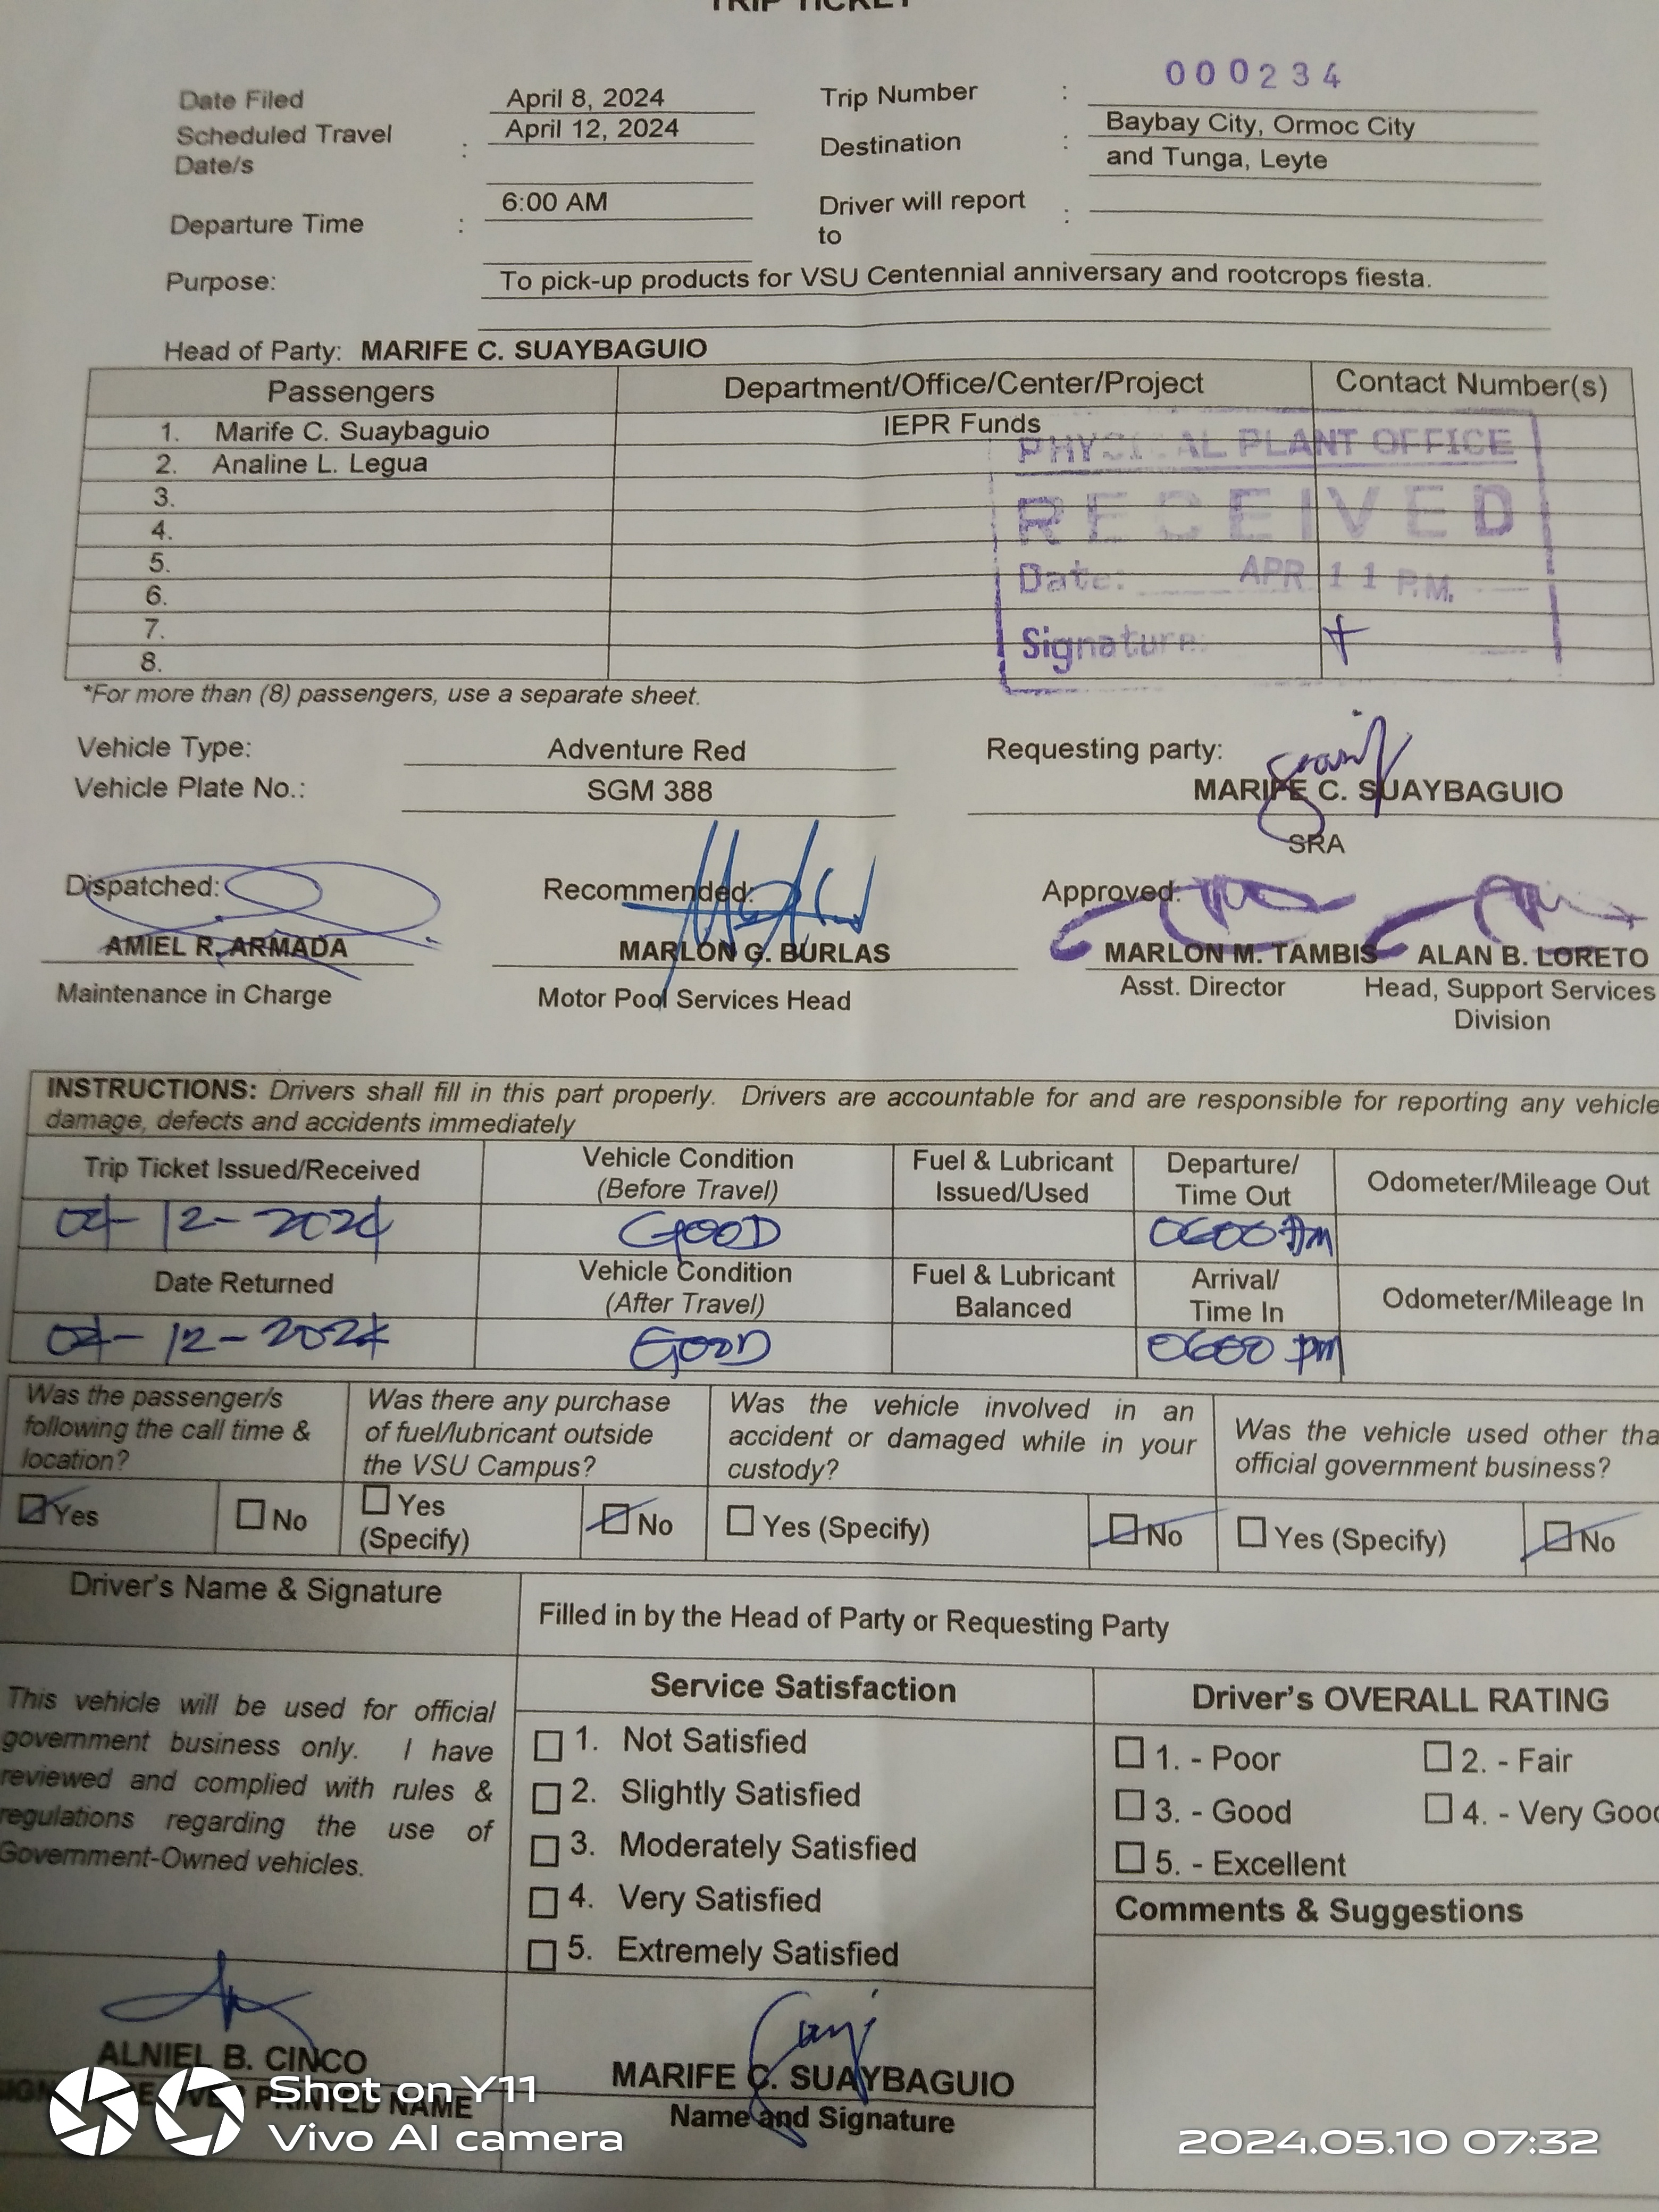 TRIP TICKET
Date Filed April 8, 2024 Trip Number : 000234
Scheduled Travel Date/s : April 12, 2024 Destination : Baybay City, Ormoc City
and Tunga, Leyte
Departure Time : 6:00 AM Driver will report to :
Purpose: To pick-up products for VSU Centennial anniversary and rootcrops fiesta.
Head of Party: MARIFE C. SUAYBAGUIO
Passengers Department/Office/Center/Project Contact Number(s)
1. Marife C. Suaybaguio IEPR Funds
2. Analine L. Legua
3.
4.
5.
6.
7.
8.
PHYSICAL PLANT OFFICE
RECEIVED
Date: APR 11 P.M.
Signature:
*For more than (8) passengers, use a separate sheet.
Vehicle Type: Adventure Red Requesting party:
Vehicle Plate No.: SGM 388 MARIFE C. SUAYBAGUIO
SRA
Dispatched: Recommended: Approved:
AMIEL R. ARMADA MARLON G. BURLAS MARLON M. TAMBIS ALAN B. LORETO
Maintenance in Charge Motor Pool Services Head Asst. Director Head, Support Services
Division
INSTRUCTIONS: Drivers shall fill in this part properly. Drivers are accountable for and are responsible for reporting any vehicle
damage, defects and accidents immediately
Trip Ticket Issued/Received Vehicle Condition (Before Travel) Fuel & Lubricant Issued/Used Departure/ Time Out Odometer/Mileage Out
04-12-2024 GOOD 0600 Am
Date Returned Vehicle Condition (After Travel) Fuel & Lubricant Balanced Arrival/ Time In Odometer/Mileage In
04-12-2024 GOOD 0600 pm
Was the passenger/s following the call time & location? Was there any purchase of fuel/lubricant outside the VSU Campus? Was the vehicle involved in an accident or damaged while in your custody? Was the vehicle used other tha official government business?
Yes No Yes (Specify) No Yes (Specify) No Yes (Specify) No
Driver's Name & Signature Filled in by the Head of Party or Requesting Party
This vehicle will be used for official
government business only. I have
reviewed and complied with rules &
regulations regarding the use of
Government-Owned vehicles.
Service Satisfaction
1. Not Satisfied
2. Slightly Satisfied
3. Moderately Satisfied
4. Very Satisfied
5. Extremely Satisfied
Driver's OVERALL RATING
1. - Poor 2. - Fair
3. - Good 4. - Very Good
5. - Excellent
Comments & Suggestions
ALNIEL B. CINCO MARIFE C. SUAYBAGUIO
PRINTED NAME Name and Signature
Shot on Y11
Vivo AI camera
2024.05.10 07:32